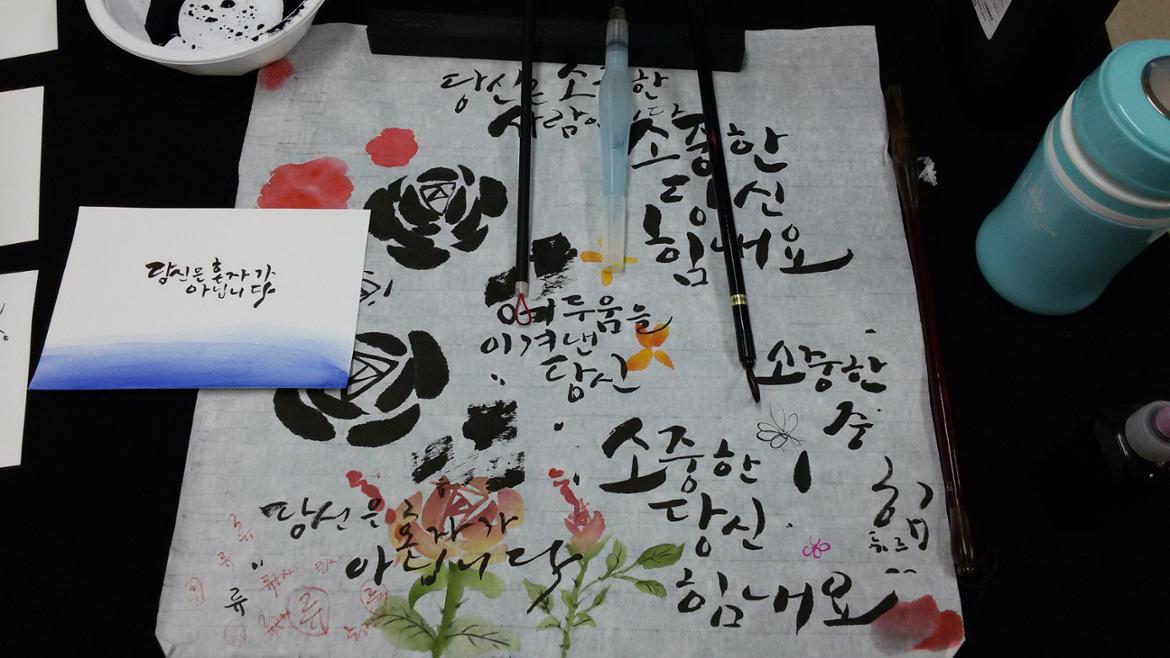 당신은 소중한
사람입니다
소중한
당신
힘내요
당신은 혼자가
아닙니다
어두움을
이겨낸
당신
소중한
중
소중한
당신
힘내요
당신은
혼자가
아닙니다
류
류
류